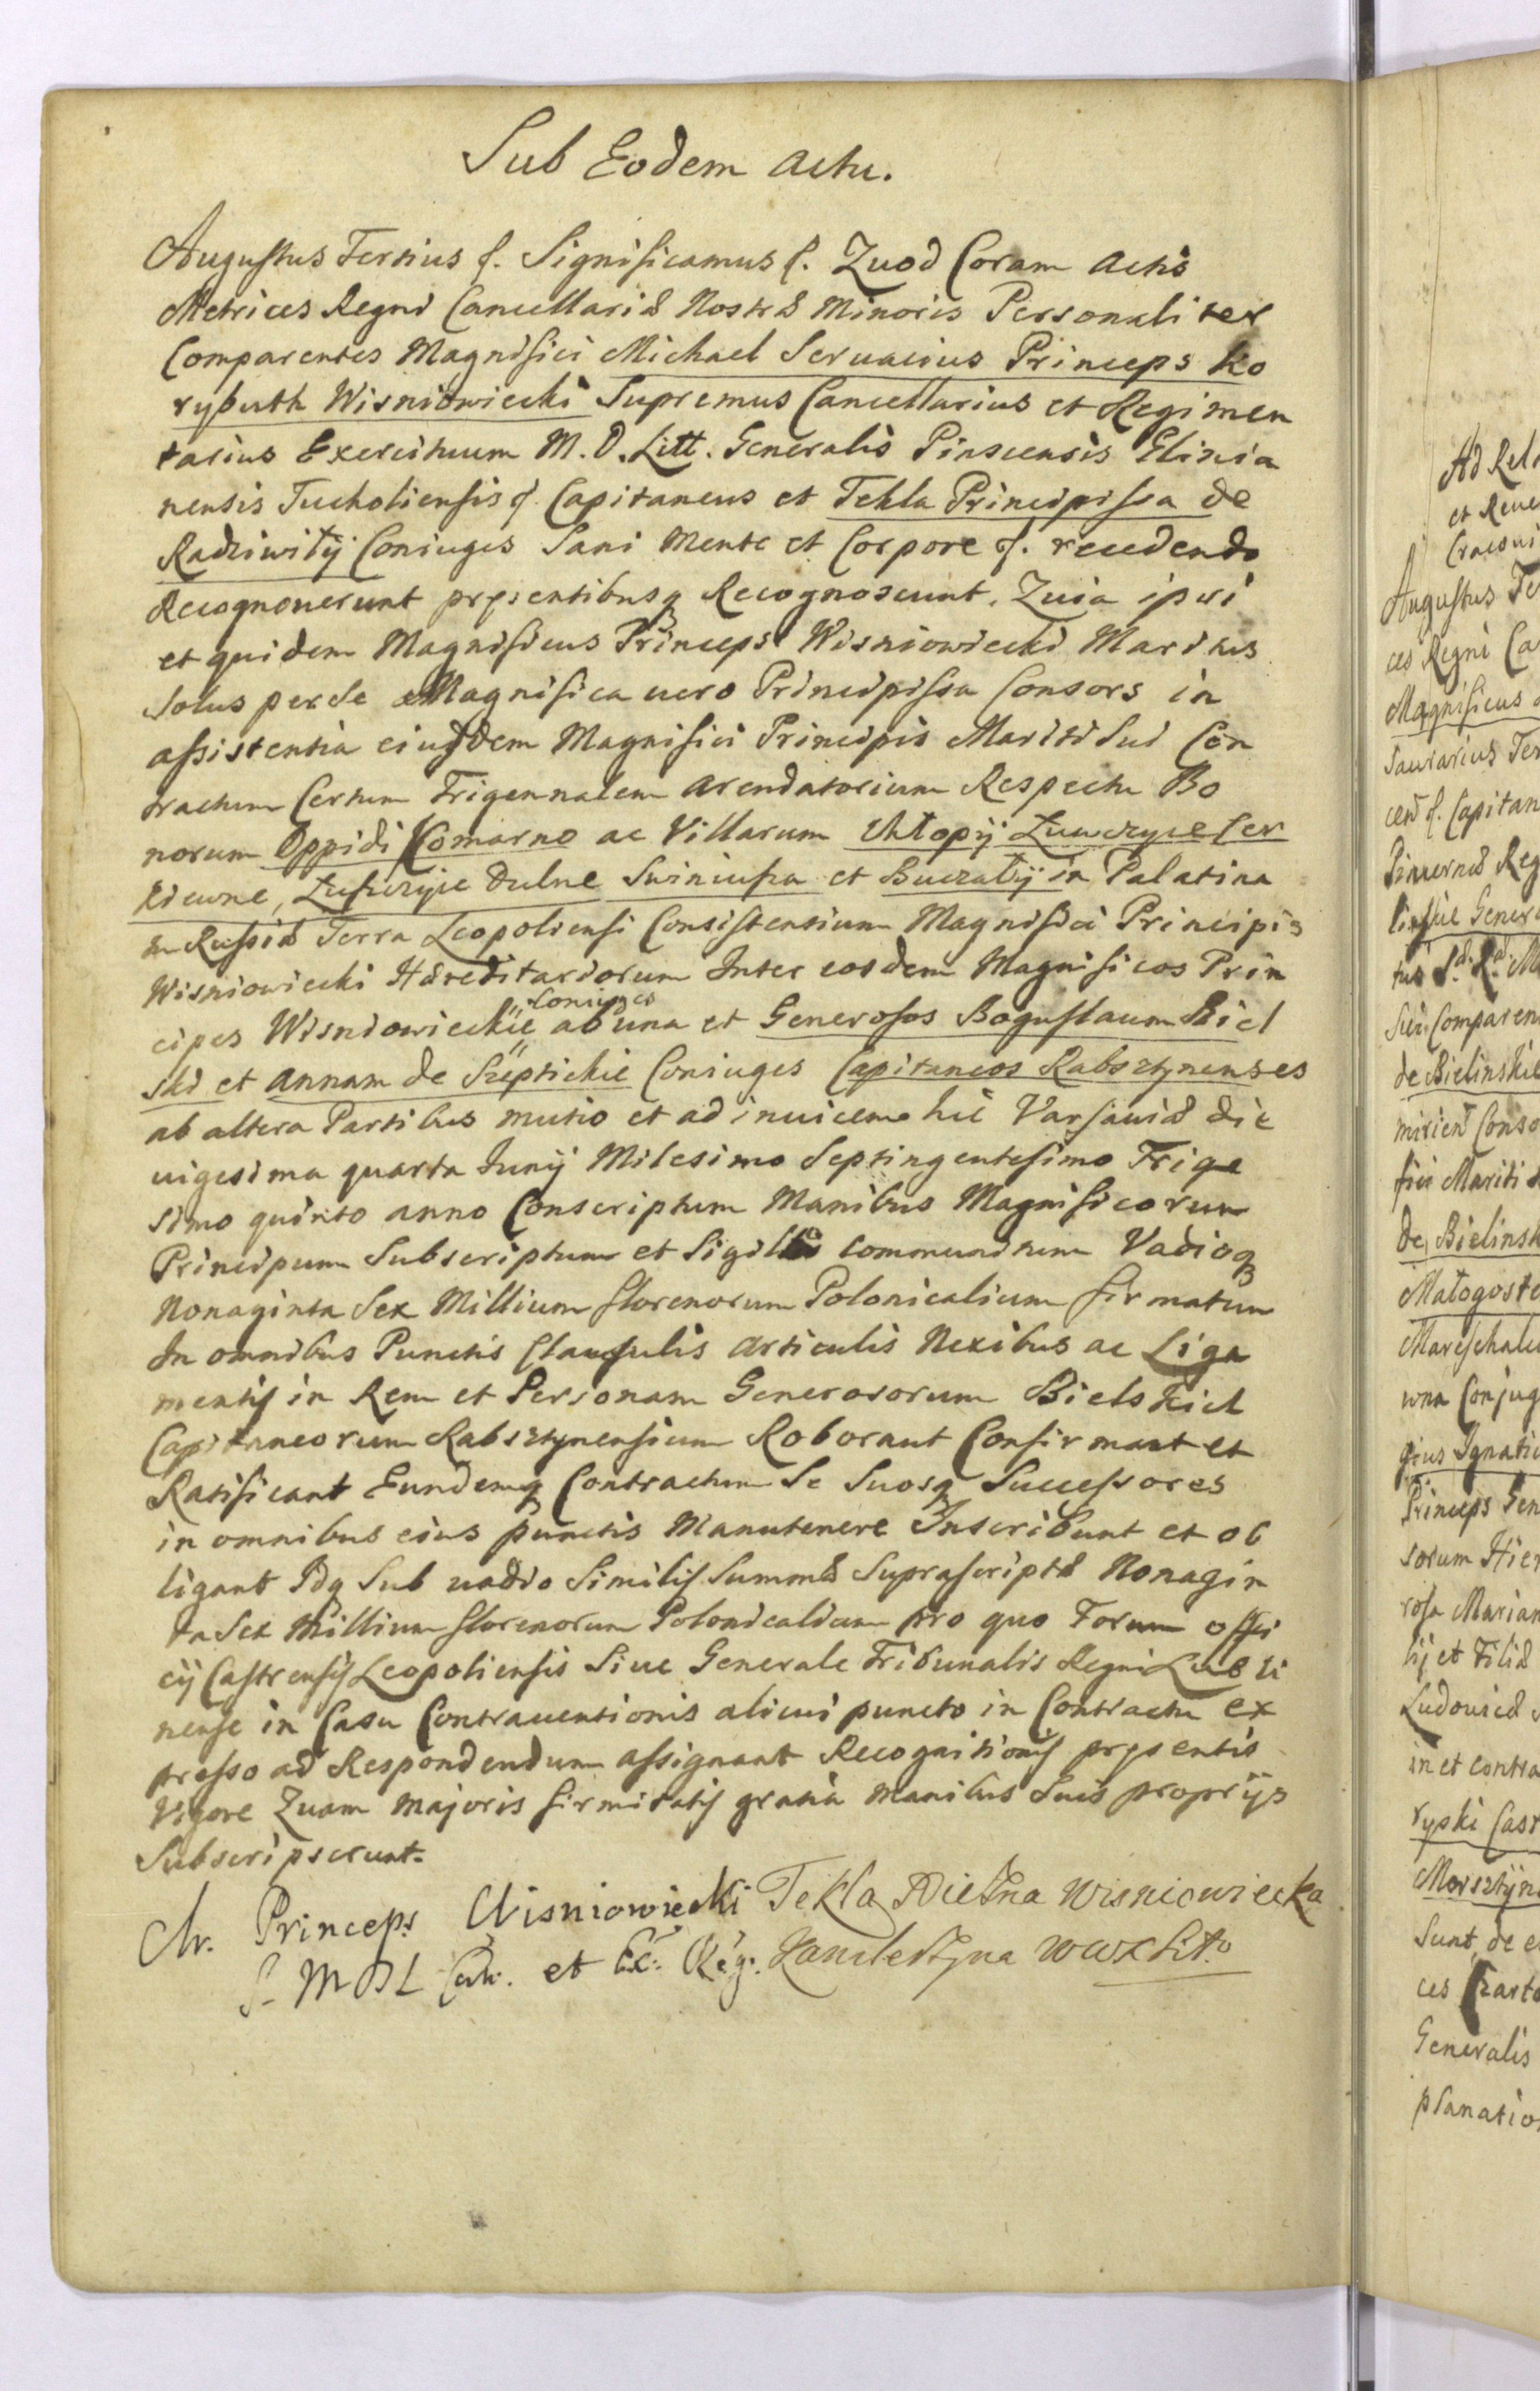 Sub Eodem Actu.
Augustus Tertius f. Significamus f. Quod Coram Actis
Metrices Regni Cancellariæ Nostræ Minoris Personaliter
Comparentes Magnifici Michael Servacius Princeps Ko
rybuth Wisniowiecki Supremus Cancellarius et Regimen
tarius Exercituum M. D. Litt. Generalis Pinscensis Glinia
nensis Tucholiensis f. Capitaneus et Tekla Principissa de
Radziwiły Coniuges Sani Mente et Corpore f. recedendo
Recognoverunt præsentibusq Recognoscunt. Quia ipsi
et quidem Magnificus Princeps Wisniowiecki Maritus
Solus per se Magnifica uero Principissa Consors in
assistentia eiusdem Magnifici Principis Mariti Sui Con
tractum Certum Trigennalem Arendatorium Respectu Bo
norum Oppidi Komarno ac Villarum Chłopy Luwczyce Ser
Wisniowiecki Hæreditariorum Inter eosdem Magnificos Prin
cipes Wisniowieckie Coniuges ab una et Generosos Boguslaum Biel
ski et Annam de Szeptickie Coniuges Capitaneos Rabsztynenses
ab altera Partibus mutuo et ad inuicem hic Varsaviæ die
uigesima quarta Junij Milesimo Septingentesimo Trige
simo quinto anno Conscriptum Manibus Magnificorum
Principum Subscriptum et Sigillis communitum Vadioq
Nonaginta Sex Millium florenorum Polonicalium firmatum
In omnibus Punctis Clausulis Articulis Nexibus ac Liga
mentis in Rem et Personam Generosorum Bielskich
Capitaneorum Rabsztynensium Roborant Confirmant et
Ratificant Eundemq Contractum Se Suosq Successores
in omnibus eius punctis Manutenere Inscribunt et ob
ligant Idq Sub uadio Similis Summæ Suprascriptæ Nonagin
ta Sex Millium florenorum Polonicalium pro quo Forum offi
cij Castrensis Leopoliensis Siue Generale Tribunalis Regni Lubli
nense in Casu Contrauentionis alicui puncto in Contractu ex
presso ad Respondendum assignant Recognitionis præsentis
Vigore Quam majoris firmitatis gratia Manibus Suis proprijs
Subscripserunt.
M. Princeps Wisniowiecki Tekla Xiezna Wisniowiecka
S. MDL Can. et Ex. Reg. Kanclerzyna WWXLit.